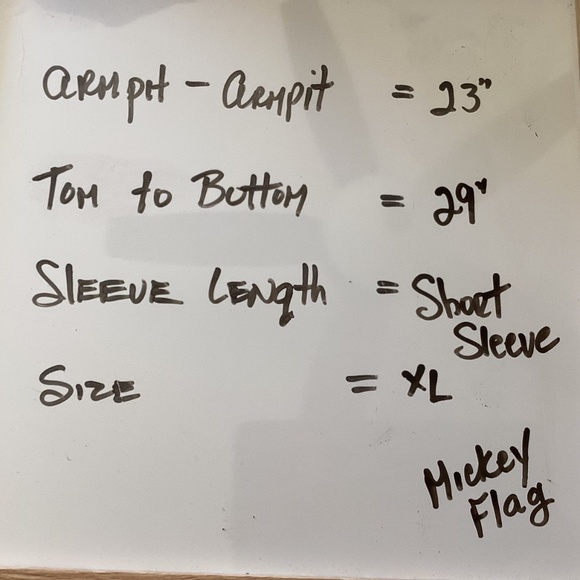 ARMPIT - ARMPIT = 23"
Tom to Bottom = 29"
SLEEVE LENgth = Short
Sleeve
SIZE = XL
Mickey
Flag